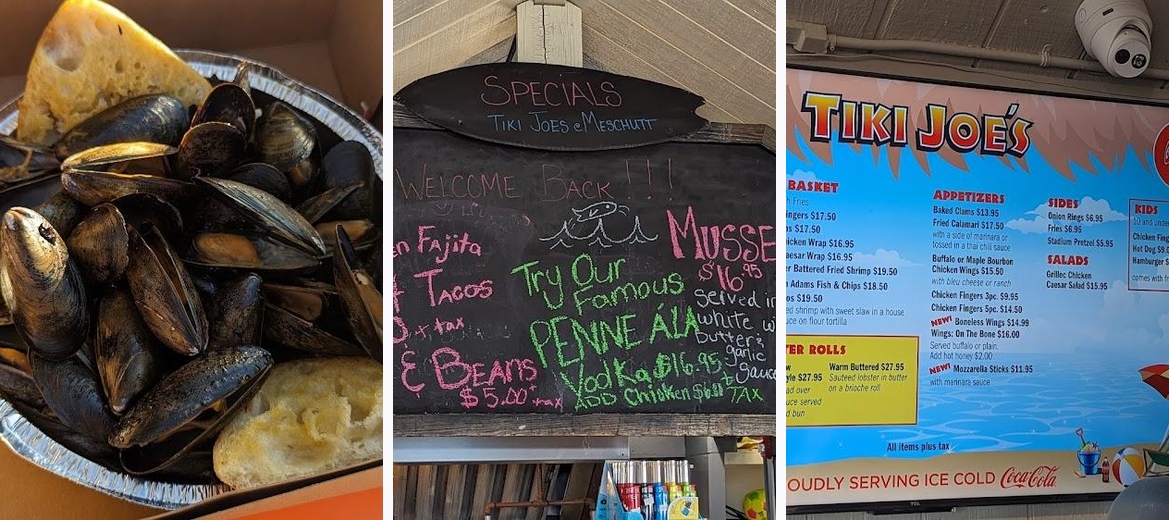 SPECIALS
TIKI JOES @ MESCHUTT
WELCOME BACK!!!
Fajita
TACOS
+ tax
& BEANS
$5.00 + tax
Try Our
Famous
PENNE ÁLA
Vodka $16.95
ADD Chicken
TAX
MUSSE
$16.95
served in
white w
butter &
garlic
Sauce
TIKI JOE'S
BASKET
h Fries
ingers $17.50
s $17.50
icken Wrap $16.95
aesar Wrap $16.95
r Battered Fried Shrimp $19.50
Adams Fish & Chips $18.50
os $19.50
ed shrimp with sweet slaw in a house
uce on flour tortilla
TER ROLLS
yle $27.95
ad over
uce served
d bun
Warm Buttered $27.95
Sauteed lobster in butter
on a brioche roll.
APPETIZERS
Baked Clams $13.95
Fried Calamari $17.50
with a side of marinara or
tossed in a thai chili sauce
Buffalo or Maple Bourbon
Chicken Wings $15.50
with bleu cheese or ranch
Chicken Fingers 3pc. $9.95
Chicken Fingers 5pc. $14.50
NEW! Boneless Wings $14.99
Wings: On The Bone $16.00
Served buffalo or plain.
Add hot honey $2.00
NEW! Mozzarella Sticks $11.95
with marinara sauce
SIDES
Onion Rings $6.95
Fries $6.95
Stadium Pretzel $5.95
SALADS
Grillec Chicken
Caesar Salad $15.95
KIDS
10 and under
Chicken Fing
Hot Dog $9.
Hamburger $
comes with fr
All items plus tax
OUDLY SERVING ICE COLD Coca-Cola
TCL